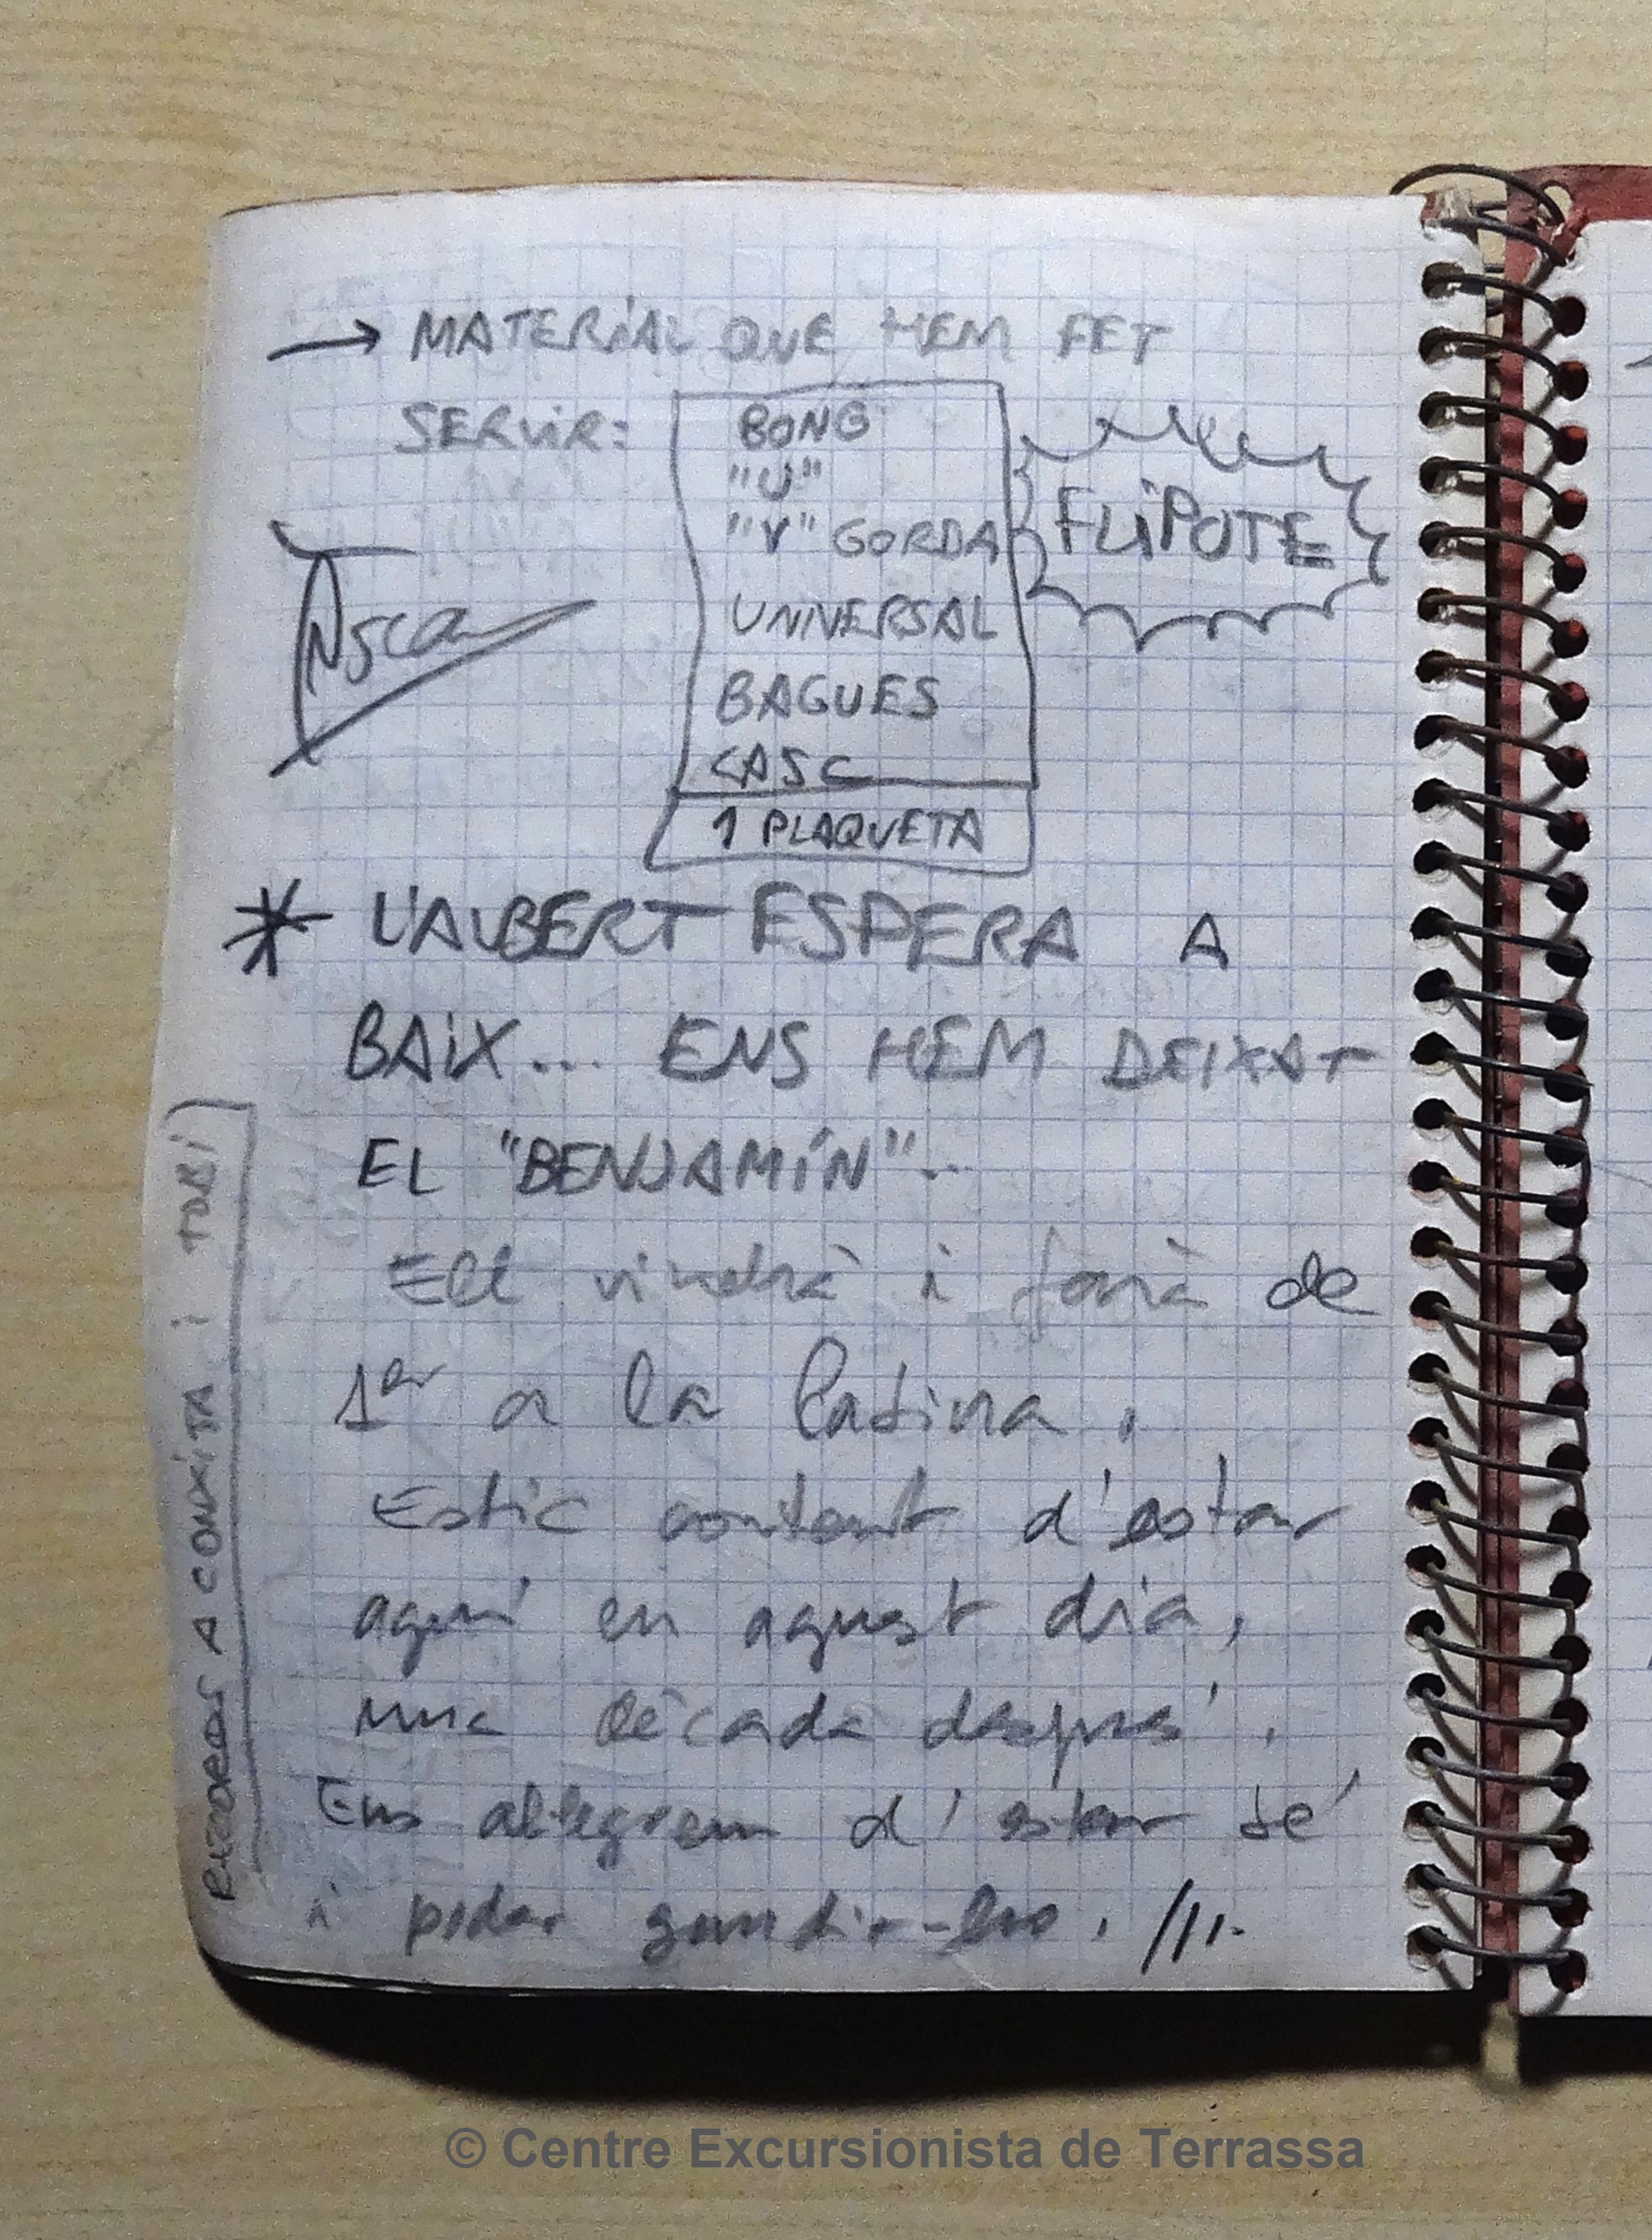 → MATERIAL QUE HEM FET
SERVIR:
BONG
"U"
"V" GORDA
UNIVERSAL
BAGUES
CASC
1 PLAQUETA
FLIPOTE
* L'ALBERT ESPERA A
BAIX... ENS HEM DEIXAT
EL "BENJAMÍN"...
Ell vindrà i farà de
1er a la
Estic content d'estar
aquí en aquest dia,
una dècada després.
Ens allegrem d'estar bé
i poder gaudir-ho. ///.
RECORDS A CONXITA i TORI
© Centre Excursionista de Terrassa